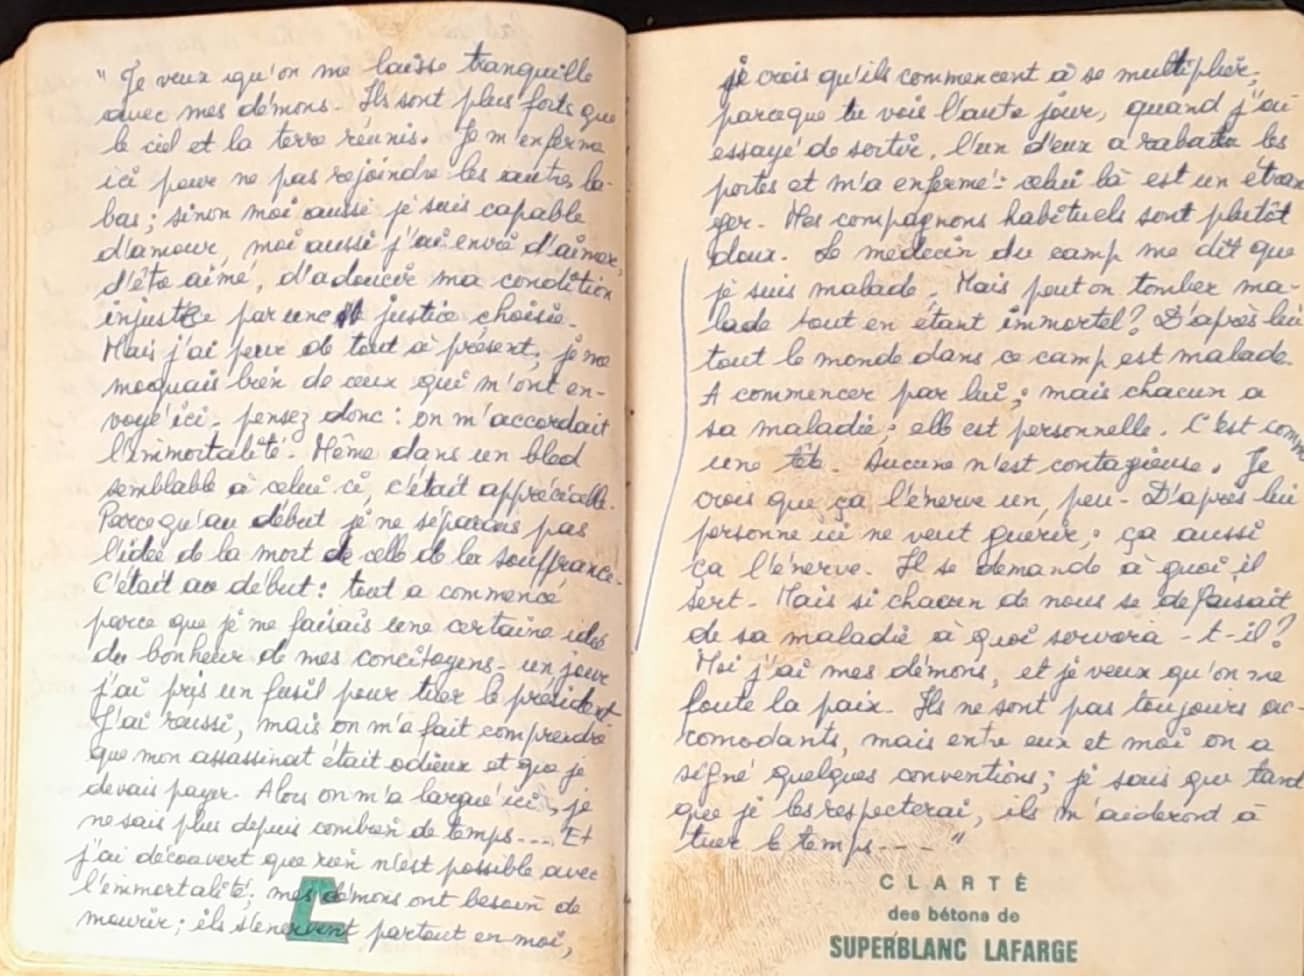 " Je veux qu'on me laisse tranquille
avec mes démons. Ils sont plus forts que
le ciel et la terre réunis. Je m'enferme
ici pour ne pas rejoindre les autres là-
bas ; sinon moi aussi je suis capable
d'amour, moi aussi j'ai envie d'aimer,
d'être aimé, d'adoucir ma condition
injuste par une justice choisie.
Mais j'ai peur de tout à présent ; je me
moquais bien de ceux qui m'ont en-
voyé ici. pensez donc : on m'accordait
l'immortalité. Même dans un bled
semblable à celui ci, c'était appréciable.
Parce qu'au début je ne séparais pas
l'idée de la mort de celle de la souffrance.
C'était au début : tout a commencé
parce que je me faisais une certaine idée
du bonheur de mes concitoyens. un jour
j'ai pris un fusil pour tuer le président
J'ai réussi, mais on m'a fait comprendre
que mon assassinat était odieux et que je
devais payer. Alors on m'a largué ici, je
ne sais plus depuis combien de temps.... Et
j'ai découvert que rien n'est possible avec
l'immortalité ; mes démons ont besoin de
mourir ; ils s'énervent partout en moi,
je crois qu'ils commencent à se multiplier ;
parceque tu vois l'autre jour, quand j'ai
essayé de sortir, l'un d'eux a rabattu les
portes et m'a enfermé : celui là est un étran
ger. Mes compagnons habituels sont plutôt
doux. Le médecin du camp me dit que
je suis malade. Mais peut on tomber ma-
lade tout en étant immortel ? D'après lui
tout le monde dans ce camp est malade.
A commencer par lui ; mais chacun a
sa maladie ; elle est personnelle. C'est comme
une tête. Aucune n'est contagieuse. Je
crois que ça l'énerve un peu. D'après lui
personne ici ne veut guérir ; ça aussi
ça l'énerve. Il se demande à quoi il
sert. Mais si chacun de nous se défaisait
de sa maladie à quoi servira-t-il ?
Moi j'ai mes démons, et je veux qu'on me
foute la paix. Ils ne sont pas toujours ac-
comodants, mais entre eux et moi on a
signé quelques conventions ; je sais que tant
que je les respecterai, ils m'aideront à
tuer le temps.... "
C
CLARTÉ
des bétons de
SUPERBLANC LAFARGE